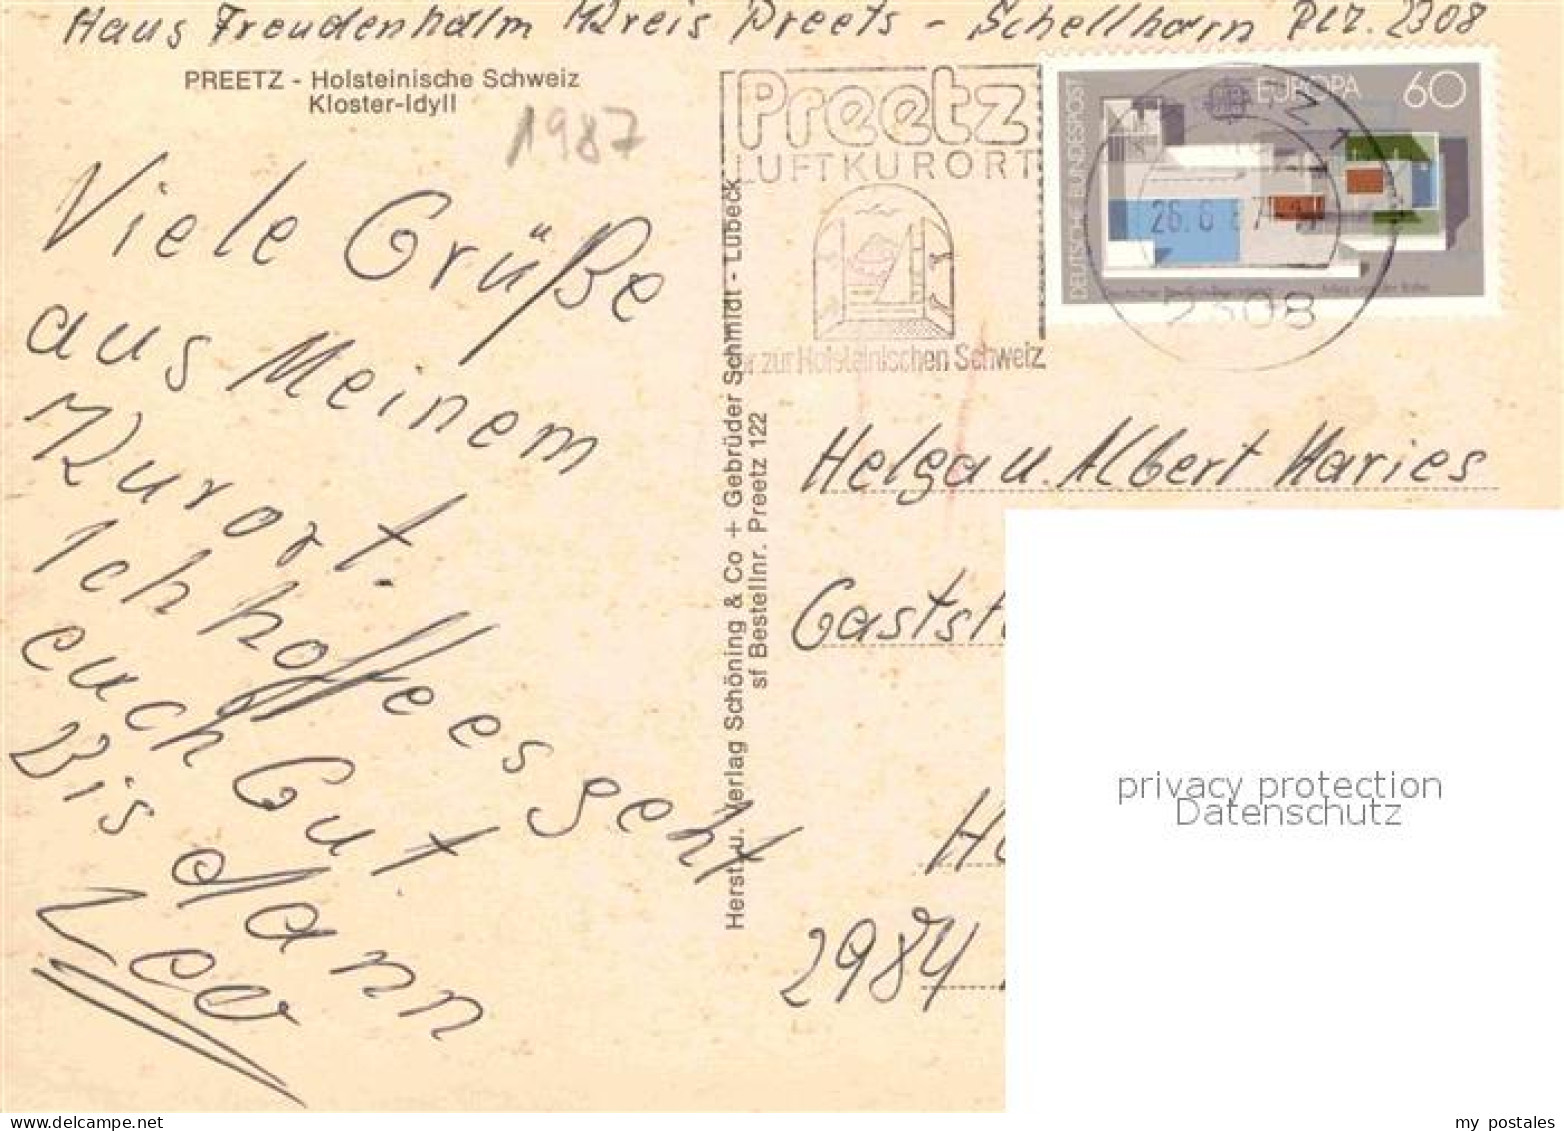 Haus Freudenholm Kreis Preets - Schellhorn Plz. 2308
PREETZ - Holsteinische Schweiz
Kloster-Idyll
1987
Viele Grüße
aus Meinem
Kurort.
Ich hoffe es geht
euch Gut
Bis dann
Leo
Herst. u. Verlag Schöning & Co + Gebrüder Schmidt - Lübeck
sf Bestellnr. Preetz 122
Preetz
LUFTKURORT
zur Holsteinischen Schweiz
DEUTSCHE BUNDESPOST
EUROPA
60
26.6.87
2308
Helga u. Albert Maries
Gastst
H
2984
privacy protection
Datenschutz
my postales